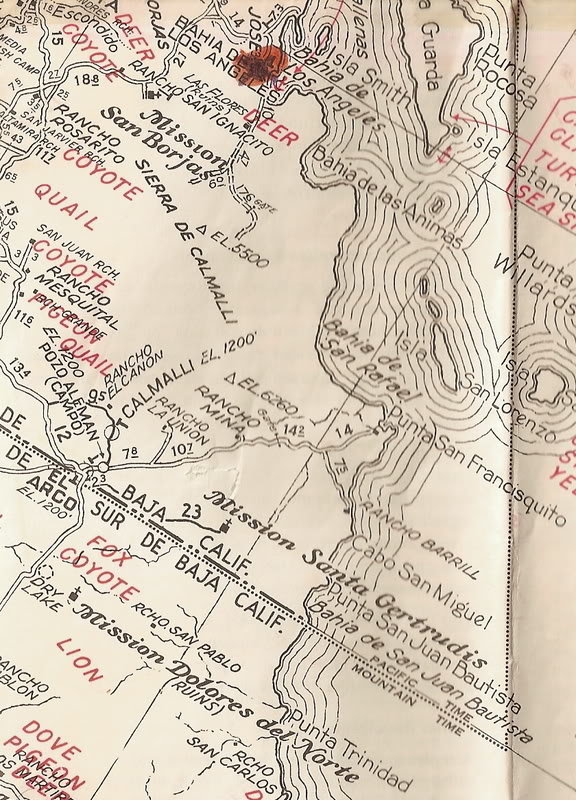 Escondido
COYOTE
DEER
15
14
18⁸
BAHIA DE
LOS ANGELES
Bahia de
Los Angeles
Isla Smith
a Guarda
Punta
Rocosa
Isla Estanque
TUR
SEA S
MEDIA
DE CAMP
RANCHO
SAN IGNACITO
LAS FLORES
DEER
Mission
San Borja
RANCHO
ROSARITO
SAN JAVIER RCH.
COYOTE
QUAIL
Bahia de las Animas
17⁶
GATE
SIERRA DE CALMALLI
△ EL.5500
65
43
15
SAN JUAN RCH.
COYOTE
RANCHO
MESQUITAL
PIGEON
QUAIL
11⁶
13⁴
EL.1200
POZO ALEMAN
(CAMBO)
RANCHO
EL CAÑON
CALMALLI EL. 1200'
△ EL.6260
RANCHO
LA UNION
RANCHO
MINA
14²
14
7⁸
10⁷
12
Punta
Willards
Bahia de
San Rafael
Isla
San Lorenzo
Isla
Punta San Francisquito
DE
DE
EL
ARCO
EL.1200'
BAJA CALIF.
SUR DE BAJA CALIF.
23
Mission Santa Gertrudis
RANCHO BARRILL
Cabo San Miguel
Punta San Juan Bautista
Bahia de San Juan Bautista
PACIFIC TIME
MOUNTAIN TIME
FOX
COYOTE
DRY
LAKE
RCHO. SAN PABLO
Mission Dolores del Norte
(RUINS)
LION
RCHO
SAN CARLOS
Punta Trinidad
DOVE
PIGEON
RANCHO